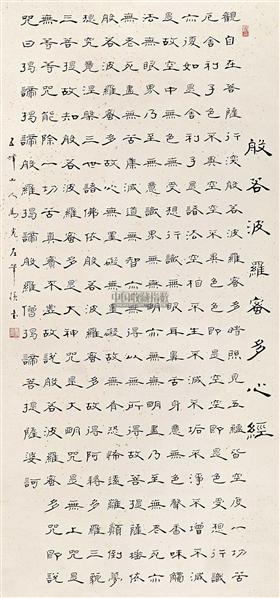 般若波羅密多心經
觀自在菩薩行深般若波羅密多時照見五蘊皆空度一切苦
厄舍利子色不異空空不異色色即是空空即是色受想行識
亦復如是舍利子是諸法空相不生不滅不垢不淨不增不減
是故空中無色無受想行識無眼耳鼻舌身意無色聲香味觸
法無眼界乃至無意識界無無明亦無無明盡乃至無老死亦
無老死盡無苦集滅道無智亦無得以無所得故菩提薩埵依
般若波羅密多故心無罣礙無罣礙故無有恐怖遠離顛倒夢
想究竟涅槃三世諸佛依般若波羅密多故得阿耨多羅三藐
三菩提故知般若波羅密多是大神咒是大明咒是無上咒是
無等等咒能除一切苦真實不虛故說般若波羅密多咒即說
咒曰揭諦揭諦般羅揭諦般羅僧揭諦菩提薩婆訶
五峰山人左筆